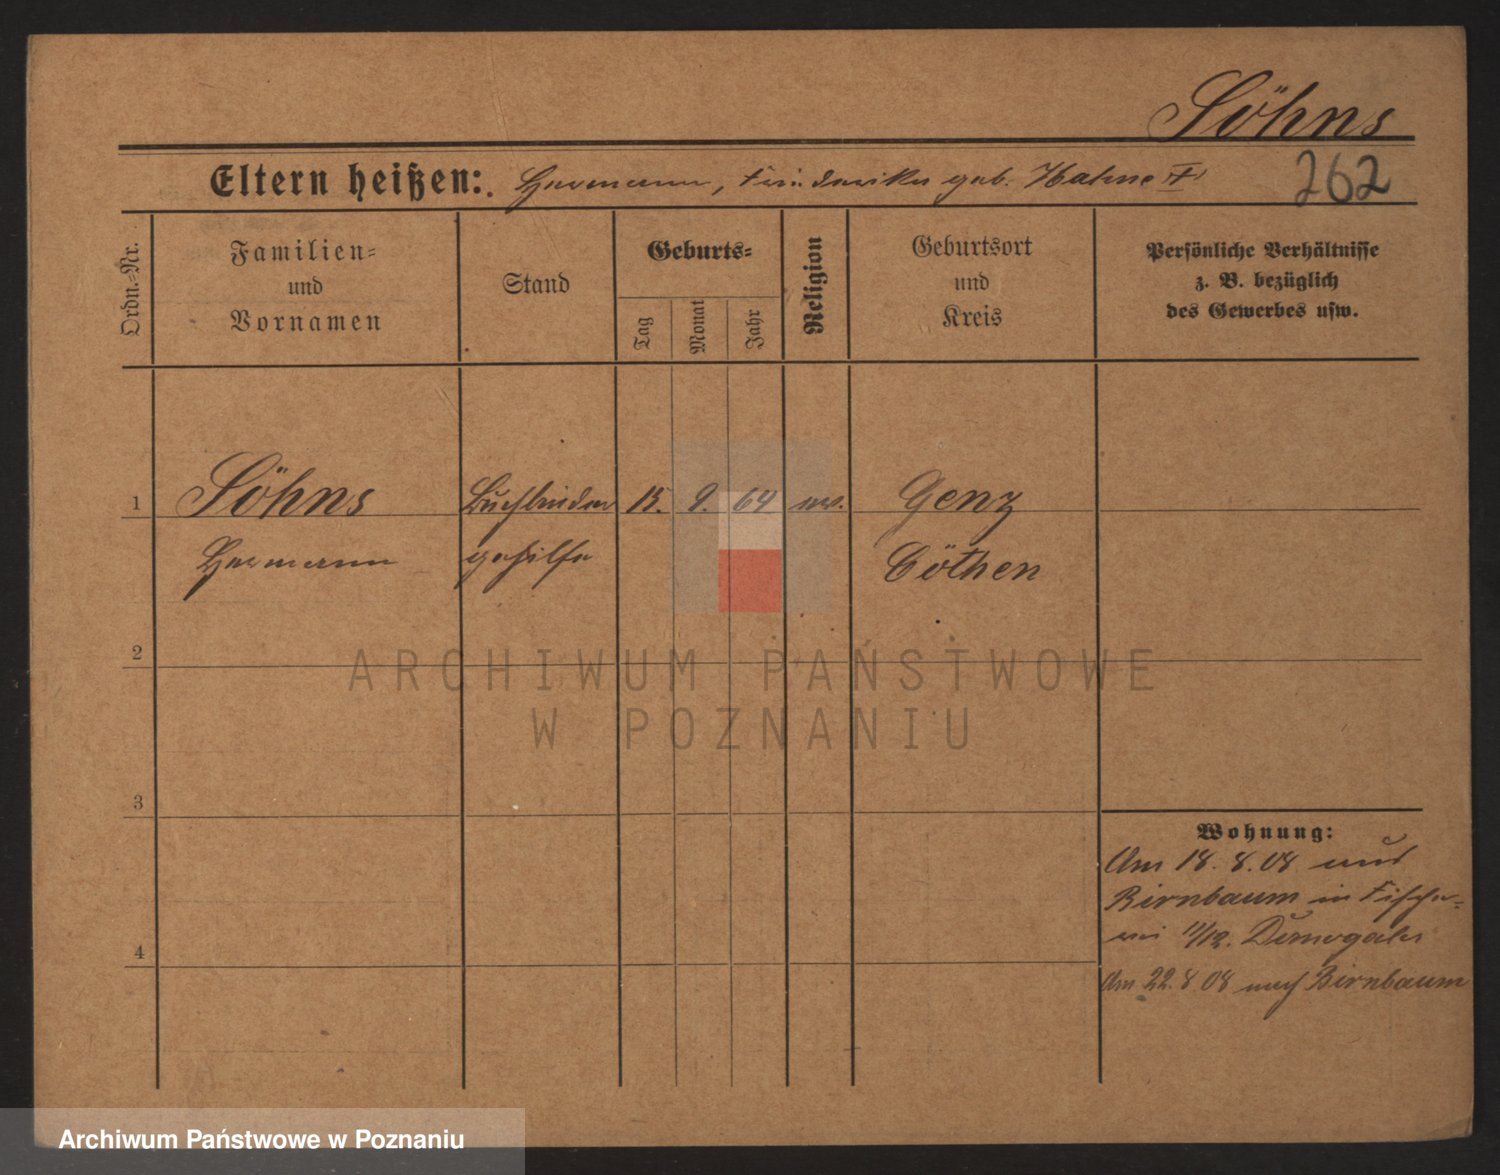 Söhns
Eltern heißen: Hermann, Friederike geb. Hahne
262
Ordn.-Nr.
Familien-
und
Vornamen
Stand
Geburts-
Tag
Monat
Jahr
Religion
Geburtsort
und
Kreis
Persönliche Verhältnisse
z. B. bezüglich
des Gewerbes usw.
1 Söhns Buchbinder 15. 9. 64 ev. Genz
Hermann gehilfe Cöthen
2
ARCHIWUM PAŃSTWOWE
W POZNANIU
3
Wohnung:
Am 18. 8. 08 aus
Birnbaum in Fische-
rei 11/12.
4
Am 22. 8 08 nach Birnbaum
Archiwum Państwowe w Poznaniu